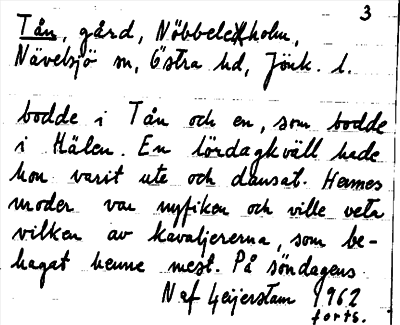 3
Tån, gård, Nöbbeleholm,
Nävelsjö sn, Östra hd, Jönk. l.
bodde i Tån och en, som bodde
i Hälen. En lördagkväll hade
hon varit ute och dansat. Hennes
moder var nyfiken och ville veta
vilken av kavaljererna, som be-
hagat henne mest. På söndagens
N af Geijerstam 1962
forts.